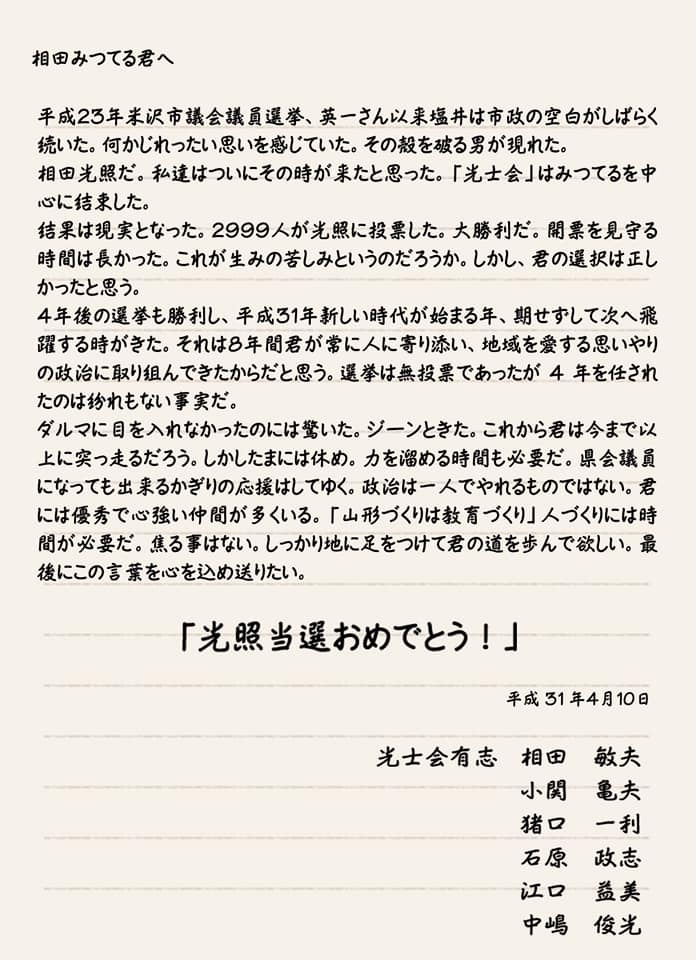 相田みつてる君へ
平成23年米沢市議会議員選挙、英一さん以来塩井は市政の空白がしばらく
続いた。何かじれったい思いを感じていた。その殻を破る男が現れた。
相田光照だ。私達はついにその時が来たと思った。「光士会」はみつてるを中
心に結束した。
結果は現実となった。2999人が光照に投票した。大勝利だ。開票を見守る
時間は長かった。これが生みの苦しみというのだろうか。しかし、君の選択は正し
かったと思う。
4年後の選挙も勝利し、平成31年新しい時代が始まる年、期せずして次へ飛
躍する時がきた。それは8年間君が常に人に寄り添い、地域を愛する思いやり
の政治に取り組んできたからだと思う。選挙は無投票であったが 4 年を任され
たのは紛れもない事実だ。
ダルマに目を入れなかったのには驚いた。ジーンときた。これから君は今まで以
上に突っ走るだろう。しかしたまには休め。力を溜める時間も必要だ。県会議員
になっても出来るかぎりの応援はしてゆく。政治は一人でやれるものではない。君
には優秀で心強い仲間が多くいる。「山形づくりは教育づくり」人づくりには時
間が必要だ。焦る事はない。しっかり地に足をつけて君の道を歩んで欲しい。最
後にこの言葉を心を込め送りたい。
「光照当選おめでとう！」
平成 31 年4月10日
光士会有志 相田 敏夫
小関 亀夫
猪口 一利
石原 政志
江口 益美
中嶋 俊光